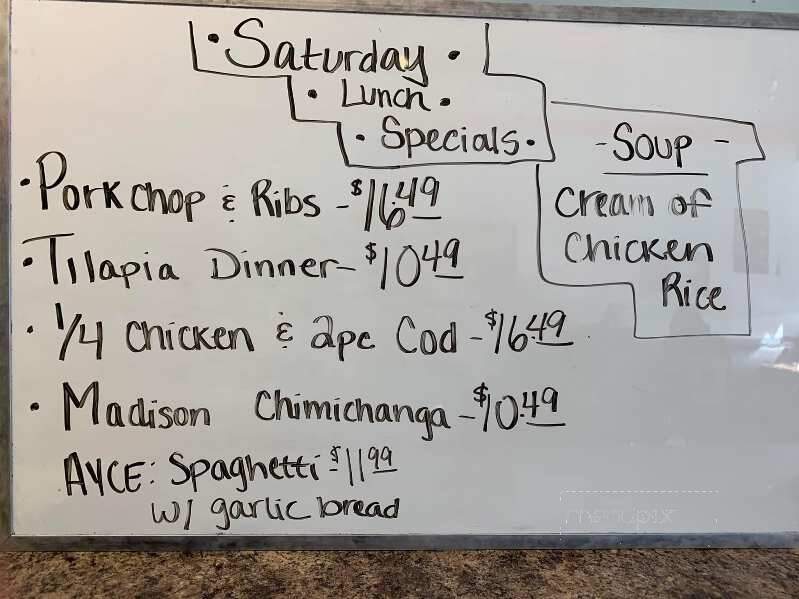 • Saturday •
• Lunch •
• Specials •
- Soup -
Cream of
Chicken
Rice
• Pork chop & Ribs - $16.49
• Tilapia Dinner - $10.49
• 1/4 Chicken & 2pc Cod - $16.49
• Madison Chimichanga - $10.49
AYCE: Spaghetti $11.99
w/ garlic bread